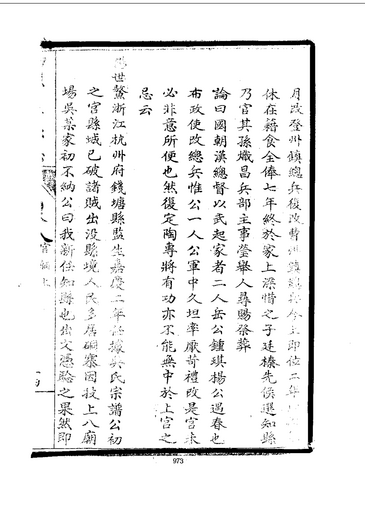 月改登州鎮總兵復改曹州鎮總兵今上即位二年
休在籍食全俸七年終於家上深惜之子廷榛先侯選知縣
乃官其孫熾昌兵部主事登舉人尋賜祭葬
論曰國朝漢總督以武起家者二人岳公鍾琪楊公遇春也
布政使改總兵惟公一人公軍中久坦率厭苛禮改是官未
必非意所便也然復定陶專將有功亦不能無中於上官之
忌云
世鰲浙江杭州府錢塘縣監生嘉慶二年任據吳氏宗譜公初
之官縣城已破諸賊出没縣境人民多居硐寨因投上八廟
場吳某家初不納公曰我新任知縣也出文憑驗之果然即
官
上
973